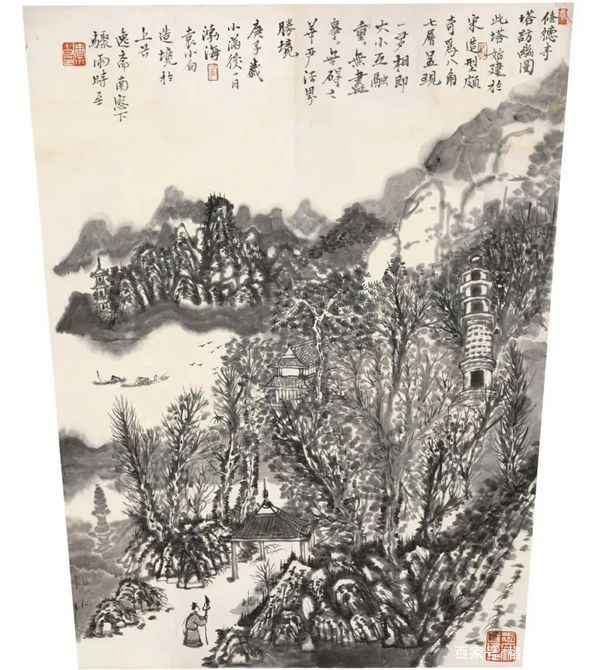 修德寺
塔訪幽圖
此塔始建於
宋造型頗
奇爲八角
七層呈現
一多相即
大小互融
重〻無盡
事〻無碍之
華严法界
勝境
庚子歲
小滿後一日
渤海
造境於
上谷
逸齋南窓下
驟雨時至
百家号